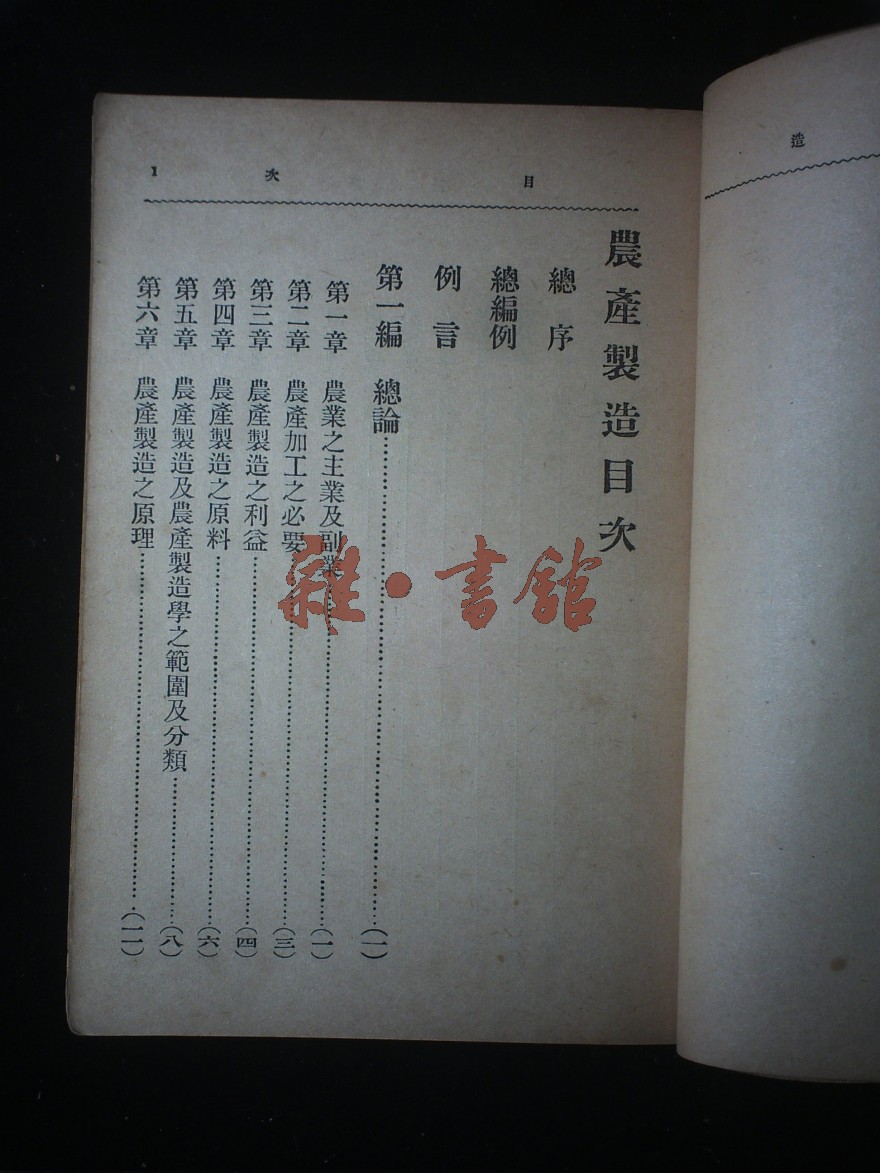 目次 1
農產製造目次
總序
總編例
例言
第一編 總論……(一)
第一章 農業之主業及副業……(一)
第二章 農產加工之必要……(三)
第三章 農產製造之利益……(四)
第四章 農產製造之原料……(六)
第五章 農產製造及農產製造學之範圍及分類……(八)
第六章 農產製造之原理……(一一)
造
雜·書館